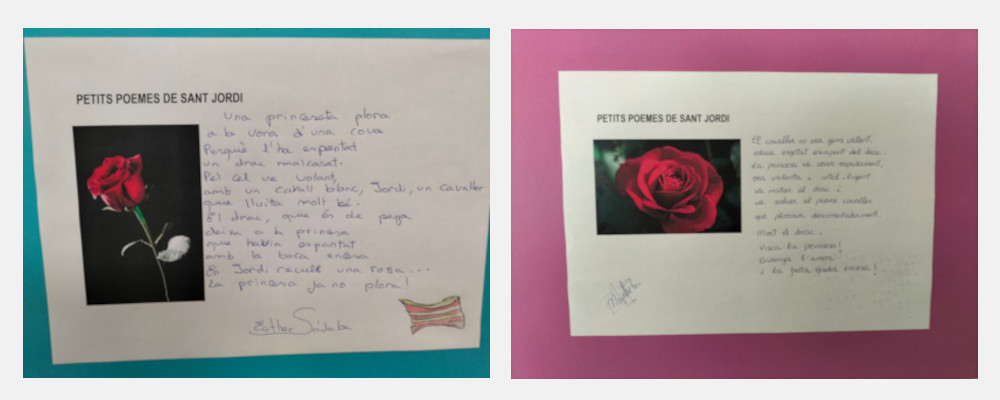 PETITS POEMES DE SANT JORDI
Una princeseta plora
a la vora d'una cova
Perquè l'ha espantad
un drac malcarat.
Pel cel ve volant,
amb un cavall blanc, Jordi, un cavaller
que lluita molt bé.
El drac, que és de pega
deixa a la princesa
que havia espantat
amb la boca encesa.
En Jordi recull una rosa...
La princesa ja no plora!
Esther
PETITS POEMES DE SANT JORDI
El cavaller no era gens valent,
estava espantat escapant del drac.
La princesa va venir ràpidament,
era valenta i intel·ligent
va matar al drac i
va salvar al pobre cavaller
que plorava desconsoladament.
Mort el drac,
visca la princesa!
Guanya l'amor
i la festa queda encesa!